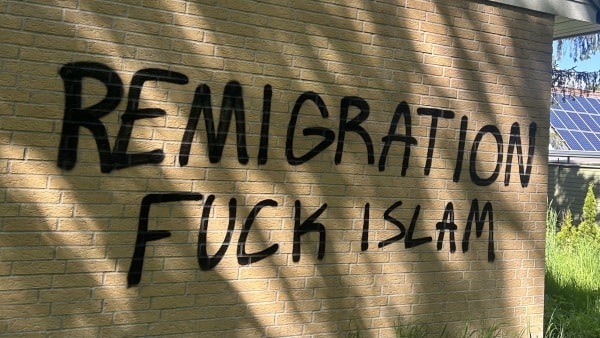 REMIGRATION
FUCK ISLAM